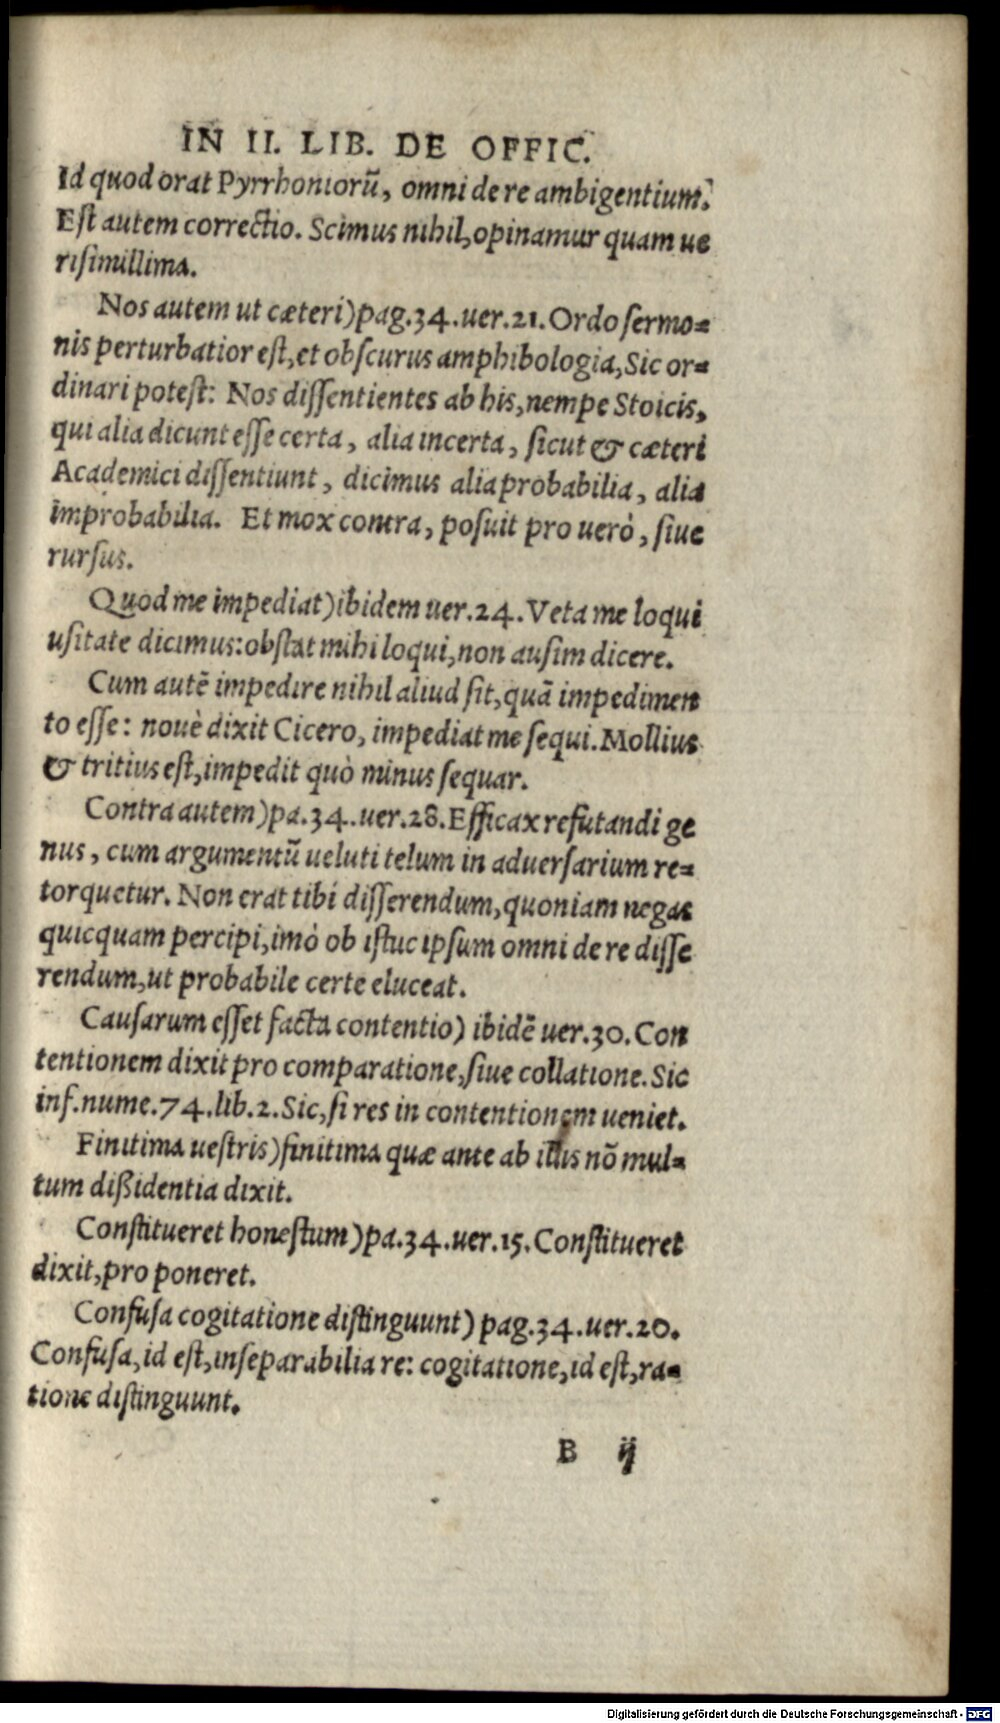 IN II. LIB. DE OFFIC.
Id quod orat Pyrrhoniorū, omni de re ambigentium.
Est autem correctio. Scimus nihil, opinamur quam ue
risimillima.
Nos autem ut cæteri) pag. 34. uer. 21. Ordo sermo=
nis perturbatior est, et obscurus amphibologia, Sic or=
dinari potest: Nos dissentientes ab his, nempe Stoicis,
qui alia dicunt esse certa, alia incerta, sicut & cæteri
Academici dissentiunt, dicimus alia probabilia, alia
improbabilia. Et mox contra, posuit pro uerò, siue
rursus.
Quod me impediat) ibidem uer. 24. Veta me loqui
usitate dicimus: obstat mihi loqui, non ausim dicere.
Cum autē impedire nihil aliud sit, quā impedimen
to esse: nouè dixit Cicero, impediat me sequi. Mollius
& tritius est, impedit quò minus sequar.
Contra autem) pa. 34. uer. 28. Efficax refutandi ge
nus, cum argumentū ueluti telum in aduersarium re=
torquetur. Non erat tibi disserendum, quoniam negas
quicquam percipi, imò ob istuc ipsum omni de re disse
rendum, ut probabile certe eluceat.
Causarum esset facta contentio) ibidē uer. 30. Con
tentionem dixit pro comparatione, siue collatione. Sic
inf. nume. 74. lib. 2. Sic, si res in contentionem ueniet.
Finitima uestris) finitima quæ ante ab illis nō mul=
tum dißidentia dixit.
Constitueret honestum) pa. 34. uer. 15. Constitueret
dixit, pro poneret.
Confusa cogitatione distinguunt) pag. 34. uer. 20.
Confusa, id est, inseparabilia re: cogitatione, id est, ra=
tione distinguunt.
B ij
Digitalisierung gefördert durch die Deutsche Forschungsgemeinschaft - DFG